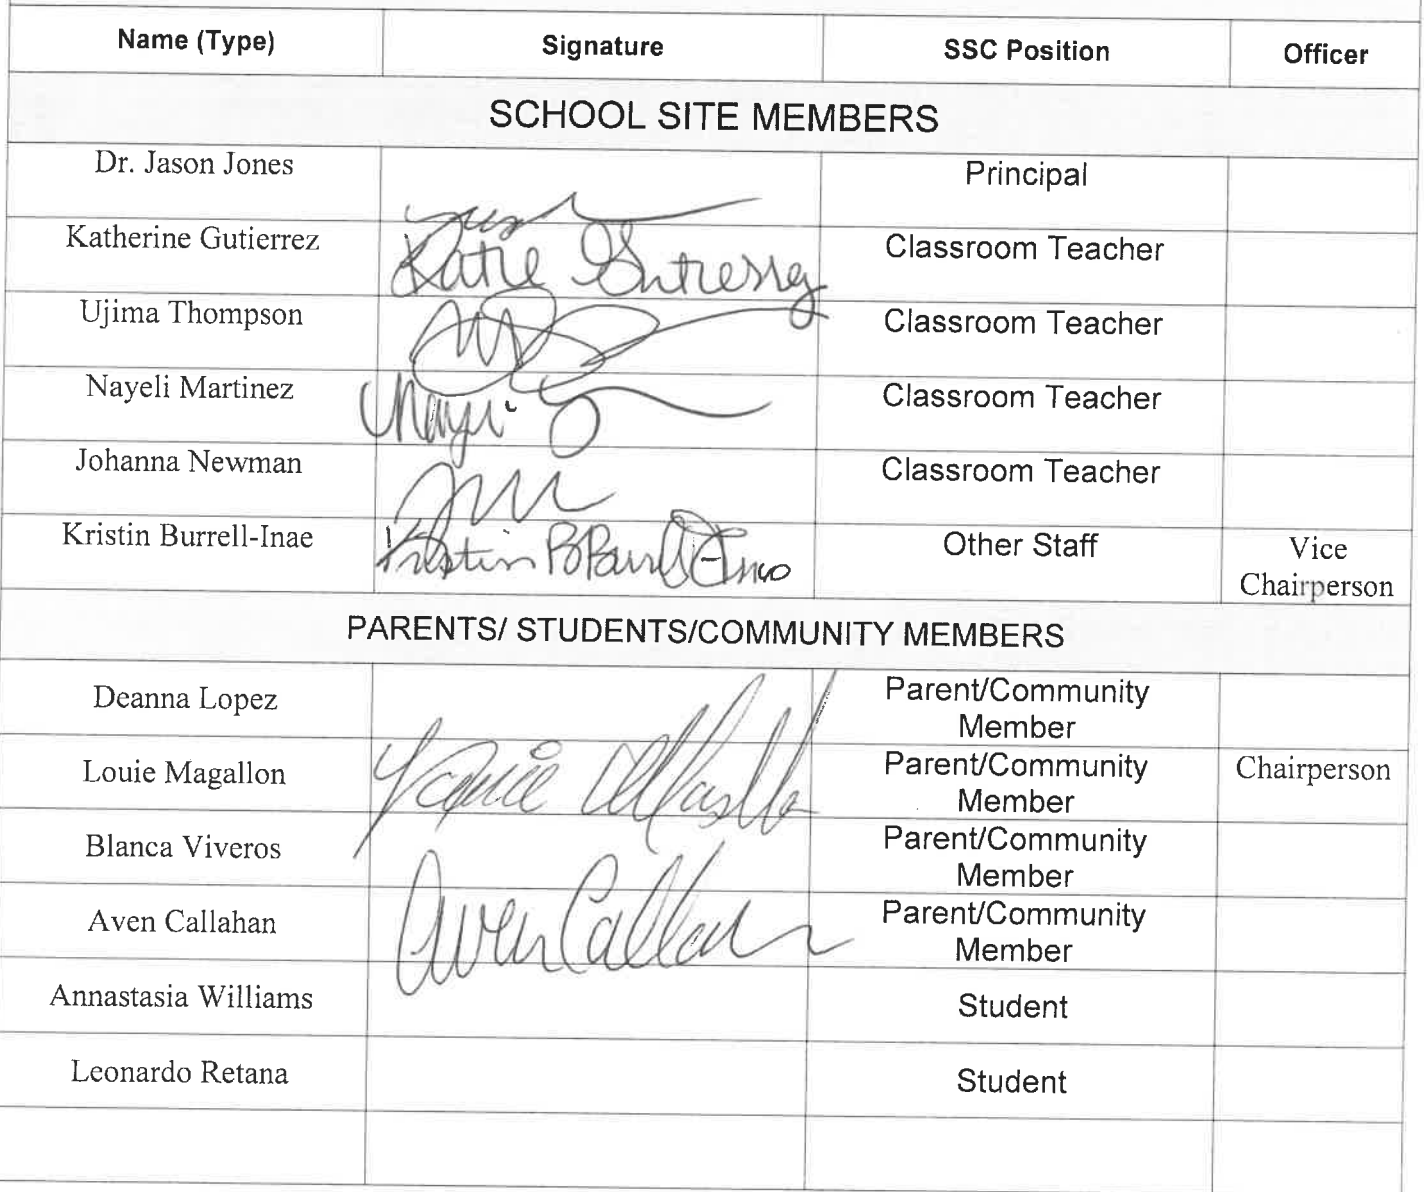 Name (Type) Signature SSC Position Officer
SCHOOL SITE MEMBERS
Dr. Jason Jones Principal
Katherine Gutierrez Katie Classroom Teacher
Ujima Thompson Classroom Teacher
Nayeli Martinez Classroom Teacher
Johanna Newman Classroom Teacher
Kristin Burrell-Inae Kristin Other Staff Vice
Chairperson
PARENTS/ STUDENTS/COMMUNITY MEMBERS
Deanna Lopez Parent/Community
Member
Louie Magallon Parent/Community Chairperson
Member
Blanca Viveros Parent/Community
Member
Aven Callahan Aven Parent/Community
Member
Annastasia Williams Student
Leonardo Retana Student